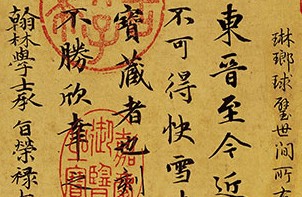 琳瑯球璧世間所
東晉至今近
不可得快雪
寶藏者也刻
不勝欣幸
翰林學士承旨榮祿大